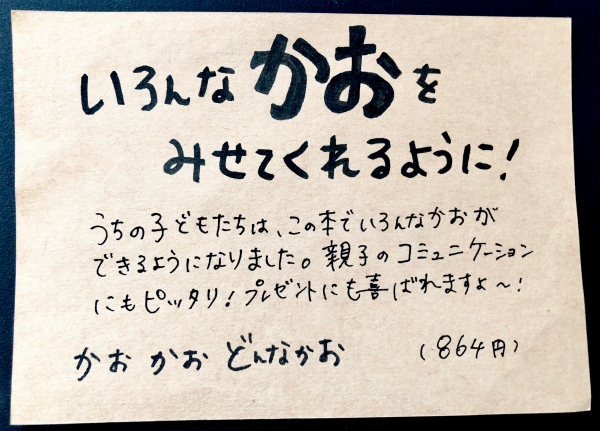 いろんなかおを
みせてくれるように!
うちの子どもたちは、この本でいろんなかおが
できるようになりました。親子のコミュニケーション
にもピッタリ!プレゼントにも喜ばれますよ〜!
かお かお どんなかお (864円)